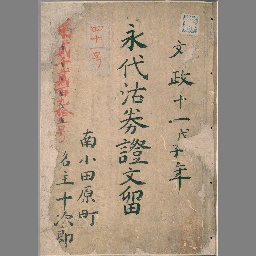 文政十一戊子年
四十一号
永代沽券證文留
南小田原町
名主十次郎